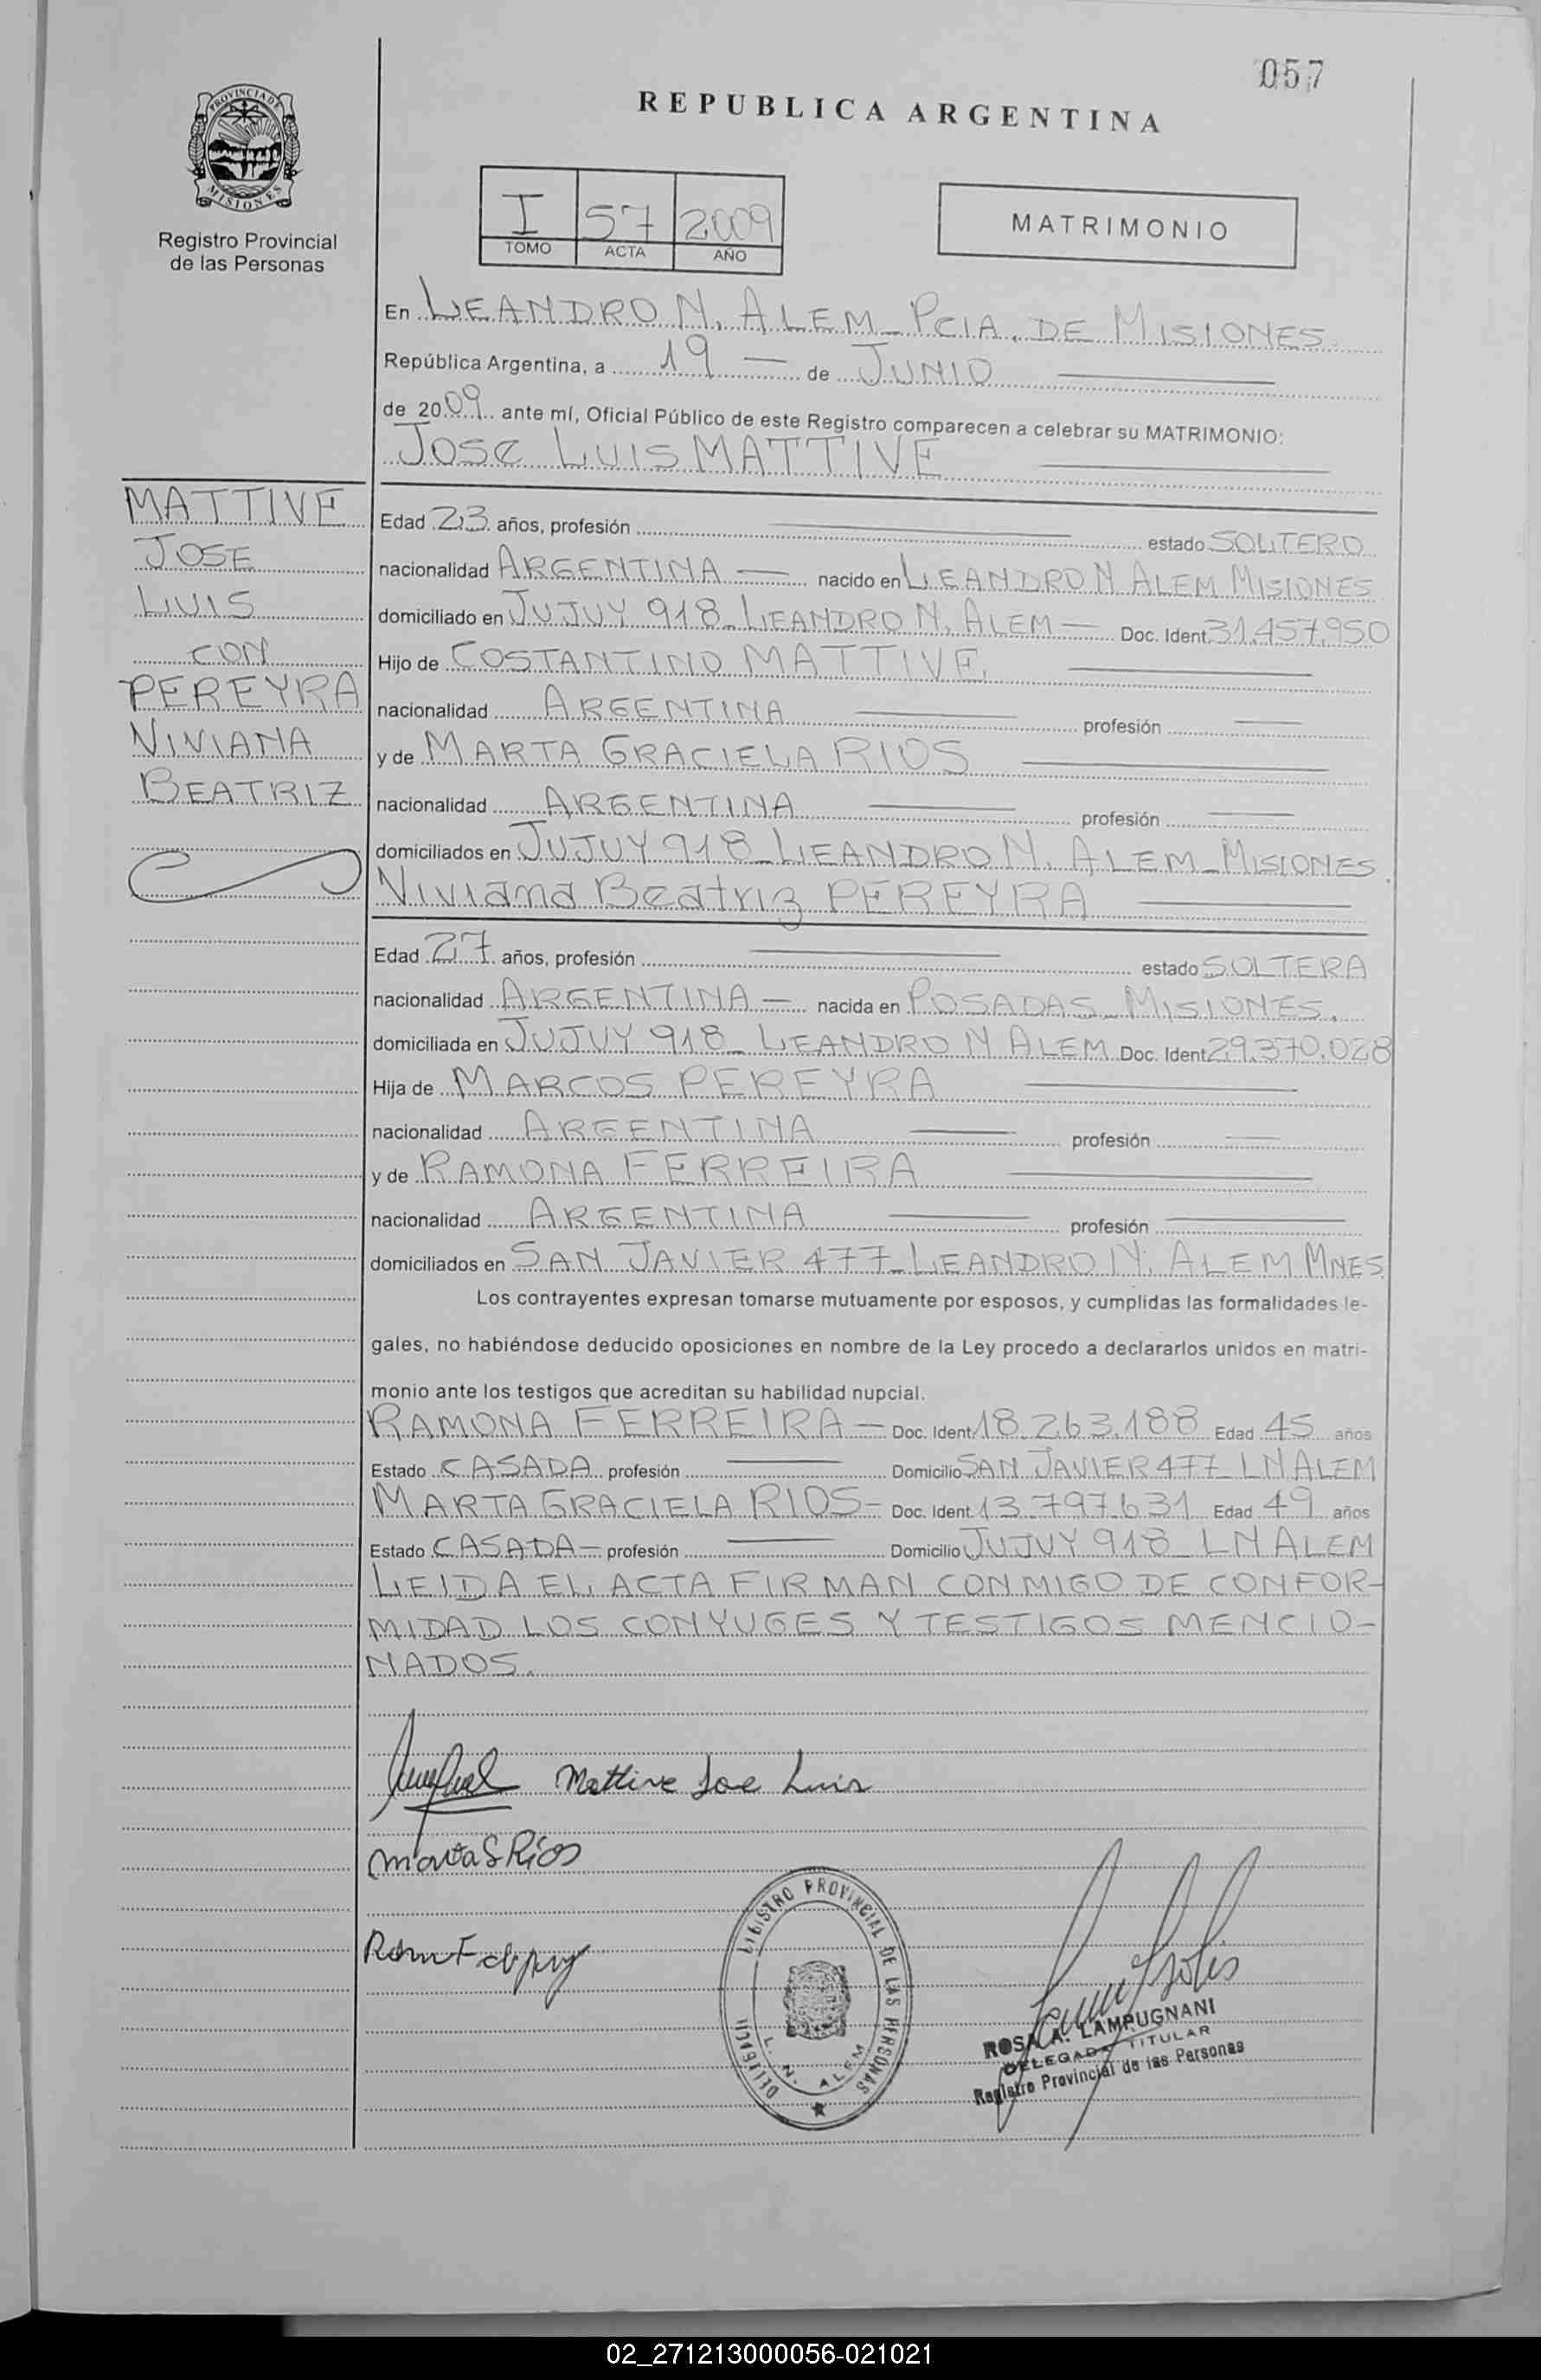 057
REPUBLICA ARGENTINA
PROVINCIA DE
MISIONES
Registro Provincial
de las Personas
I 57 2009
TOMO ACTA AÑO
MATRIMONIO
En LEANDRO N. ALEM - PCIA. DE MISIONES
República Argentina, a 19 — de JUNIO
de 2009 ante mí, Oficial Público de este Registro comparecen a celebrar su MATRIMONIO:
JOSE LUIS MATTIVE
MATTIVE
JOSE
LUIS
CON
PEREYRA
VIVIANA
BEATRIZ
Edad 23 años, profesión estado SOLTERO
nacionalidad ARGENTINA — nacido en LEANDRO N ALEM MISIONES
domiciliado en JUJUY 918 - LEANDRO N. ALEM — Doc. Ident. 31.457.950
Hijo de COSTANTINO MATTIVE.
nacionalidad ARGENTINA profesión
y de MARTA GRACIELA RIOS
nacionalidad ARGENTINA profesión
domiciliados en JUJUY 918 - LEANDRO N. ALEM - MISIONES.
Viviana Beatriz PEREYRA
Edad 27 años, profesión estado SOLTERA
nacionalidad ARGENTINA — nacida en POSADAS - MISIONES.
domiciliada en JUJUY 918 - LEANDRO N ALEM Doc. Ident. 29.370.028
Hija de MARCOS PEREYRA
nacionalidad ARGENTINA profesión
y de RAMONA FERREIRA
nacionalidad ARGENTINA profesión
domiciliados en SAN JAVIER 477 - LEANDRO N. ALEM MNES
Los contrayentes expresan tomarse mutuamente por esposos, y cumplidas las formalidades le-
gales, no habiéndose deducido oposiciones en nombre de la Ley procedo a declararlos unidos en matri-
monio ante los testigos que acreditan su habilidad nupcial.
RAMONA FERREIRA — Doc. Ident. 18.263.188 Edad 45 años
Estado CASADA profesión Domicilio SAN JAVIER 477 L N ALEM
MARTA GRACIELA RIOS - Doc. Ident. 13.797.631 Edad 49 años
Estado CASADA — profesión Domicilio JUJUY 918 - L N ALEM
LEIDA EL ACTA FIRMAN CONMIGO DE CONFOR-
MIDAD LOS CONYUGES Y TESTIGOS MENCIO-
NADOS.
Mattive Jose Luis
Marta G Ríos
REGISTRO PROVINCIAL DE LAS PERSONAS
DELEGACION
L. N. ALEM
ROSA A. LAMPUGNANI
DELEGADA TITULAR
Registro Provincial de las Personas
02_271213000056-021021